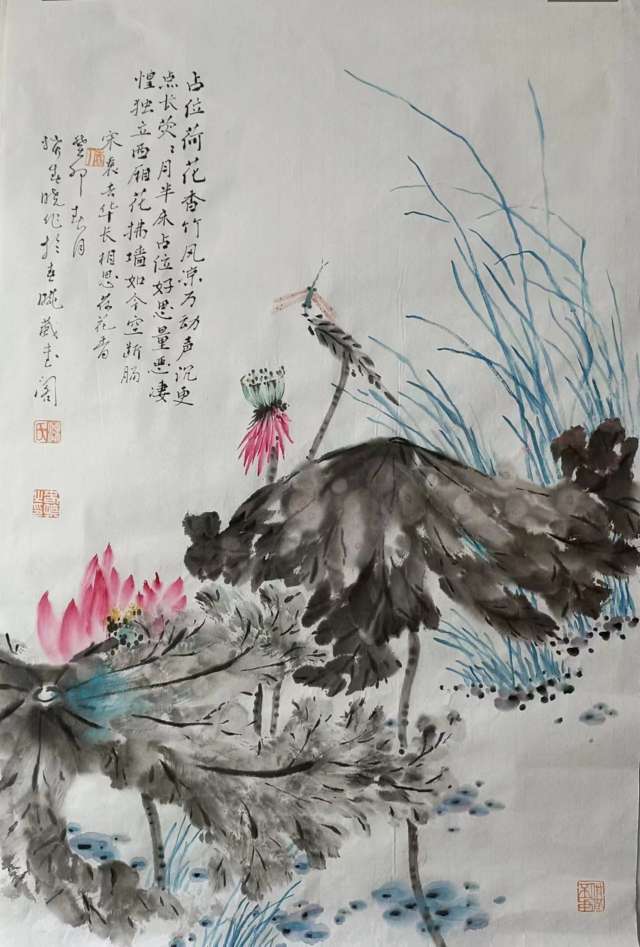 占位荷花香竹风凉乃动声沉更
点长荧〻月半床占位好思量思凄
惶独立西厢花拂墙如今空断肠
宋袁去华长相思荷花香
癸卯春月
春晓作于
藏书阁